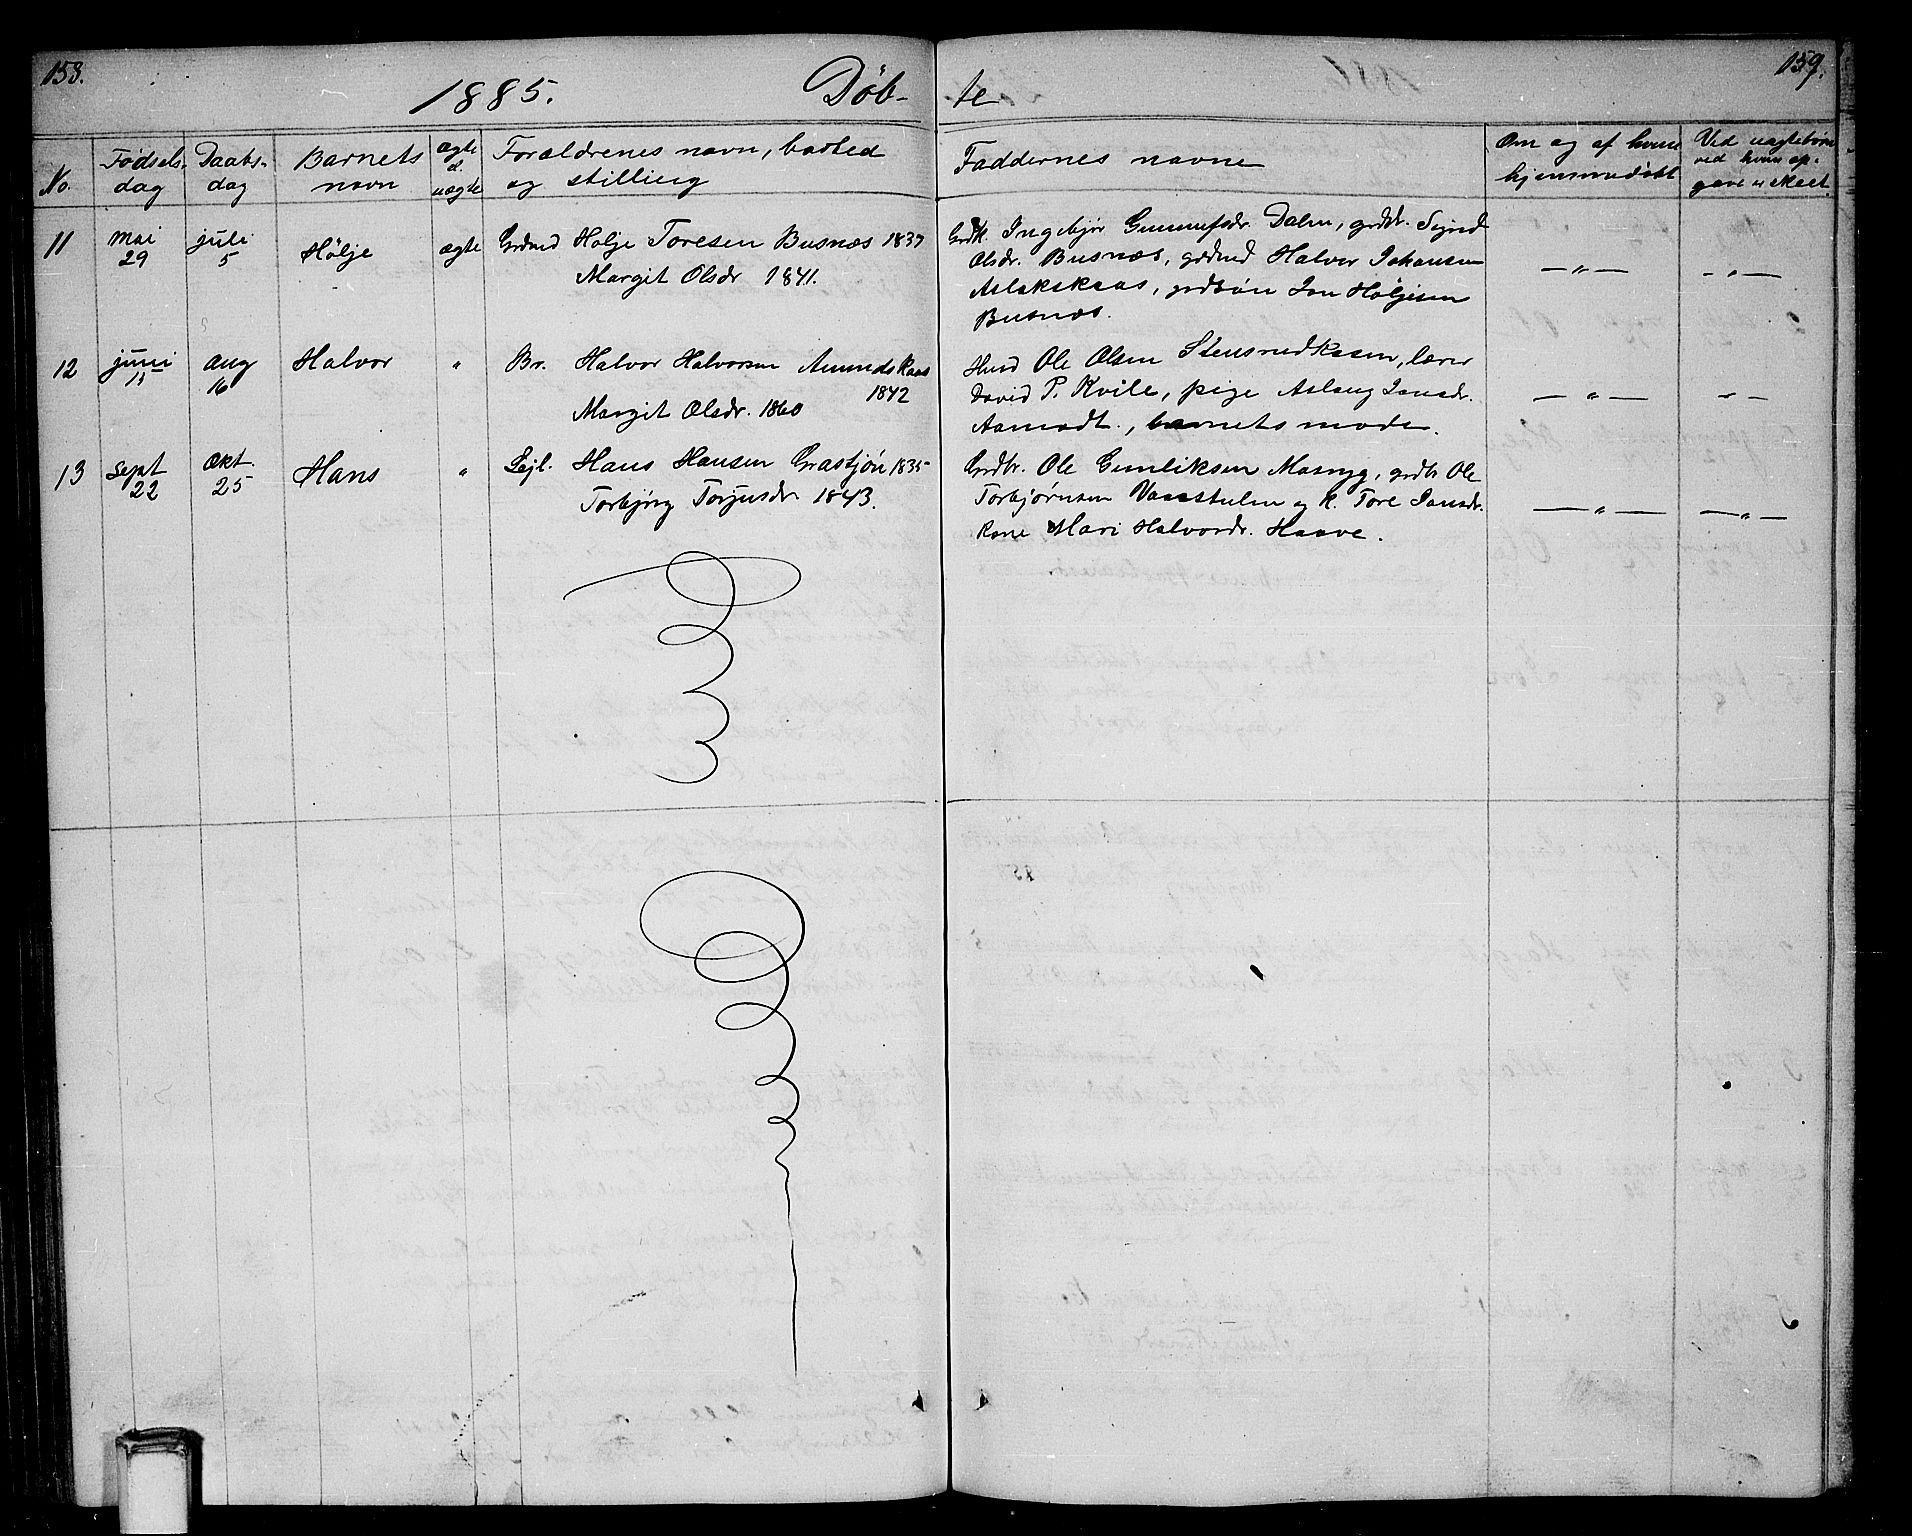 158.
1885. Døb- te
159.
No.
Fødsels-
dag
Daabs-
dag
Barnets
navn
ægte
el.
uægte
Forældrenes navn, bosted
og stilling
Faddernes navne
Om og af hvem
hjemmedøbt
Ved uægtebørn
ved hvem op-
gave er skeet.
11
mai
29
juli
5
Hølje
ægte
Grdmd Hølje Toresen Busnæs 1837
Margit Olsdr 1841.
Grdk. Ingebjør Gunnufsdr. Dalen, grddr. Signe
Olsdr. Busnæs, grdmd Halvor Johansen
Aslakskaas, grdsøn Jon Høljesen
Busnæs.
— " —
— " —
12
juni
11
aug
16
Halvor
"
Br. Halvor Halvorsen Amundskaas
1842
Margit Olsdr. 1860
Husd Ole Olsen Stensrudkaasen, lærer
David P. Kvile, pige Aslaug Jonsdr.
Aamodt, barnets moder.
— " —
— " —
13
sept
22
okt.
25
Hans
"
Lejl. Hans Hansen Græstjøn 1835
Torbjørg Torjusdr 1843.
Grdbr. Ole Gunliksen Masryg, grdbr Ole
Torbjørnsen Vaastulen og k. Tore Jonsdr.
kone Mari Halvordr. Haave.
— " —
— " —